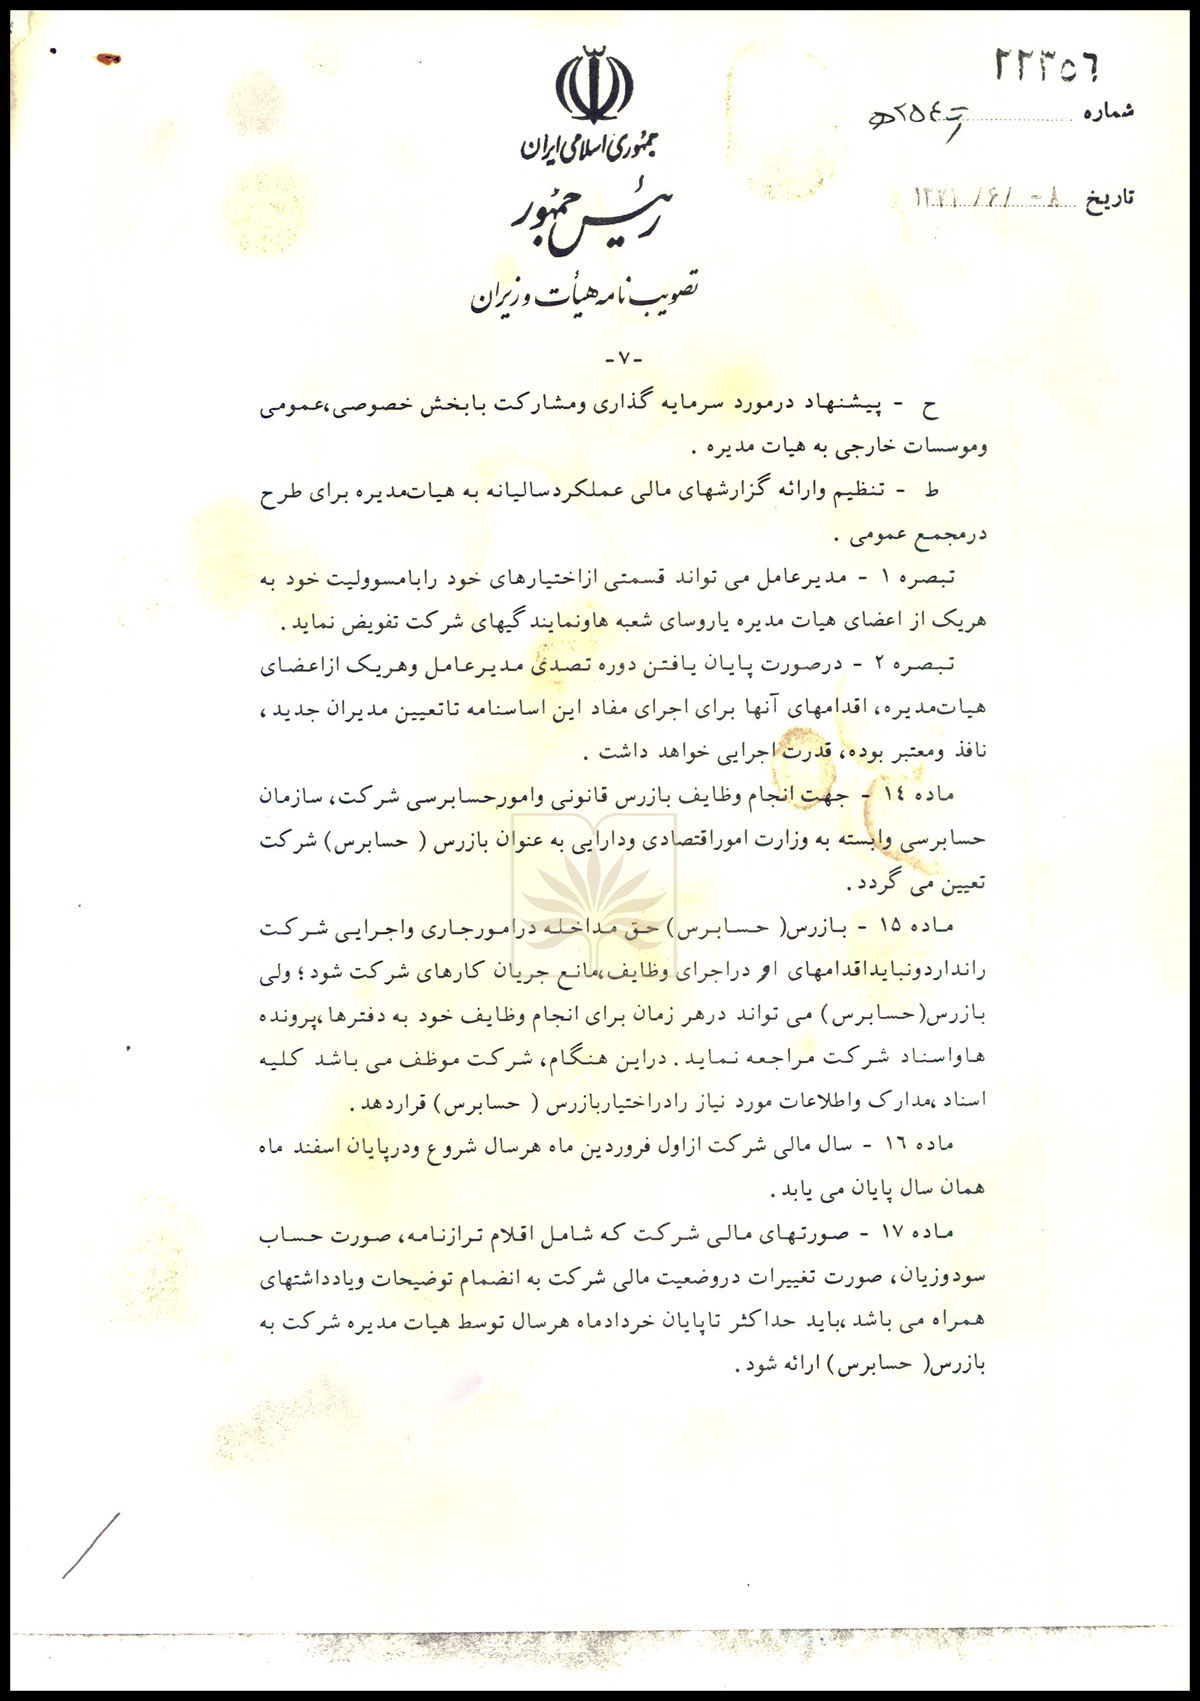 ۲۲۳۵۶
شماره
تاریخ ۸ -/۶/ ۱۳۷۱
جمهوری اسلامی ایران
رئیس جمهور
تصویب نامه هیأت وزیران
-۷-
ح - پیشنهاد درمورد سرمایه گذاری ومشارکت بابخش خصوصی،عمومی
وموسسات خارجی به هیات مدیره .
ط - تنظیم وارائه گزارشهای مالی عملکردسالیانه به هیات‌مدیره برای طرح
درمجمع عمومی .
تبصره ۱ - مدیرعامل می تواند قسمتی ازاختیارهای خود رابامسوولیت خود به
هریک از اعضای هیات مدیره یاروسای شعبه هاونمایندگیهای شرکت تفویض نماید.
تبصره ۲ - درصورت پایان یافتن دوره تصدی مدیرعامل وهریک ازاعضای
هیات‌مدیره، اقدامهای آنها برای اجرای مفاد این اساسنامه تاتعیین مدیران جدید ،
نافذ ومعتبر بوده، قدرت اجرایی خواهد داشت .
ماده ۱۴ - جهت انجام وظایف بازرس قانونی وامورحسابرسی شرکت، سازمان
حسابرسی وابسته به وزارت اموراقتصادی ودارایی به عنوان بازرس ( حسابرس) شرکت
تعیین می گردد.
ماده ۱۵ - بازرس( حسابرس) حق مداخله درامورجاری واجرایی شرکت
رانداردونبایداقدامهای او دراجرای وظایف،مانع جریان کارهای شرکت شود؛ ولی
بازرس(حسابرس) می تواند درهر زمان برای انجام وظایف خود به دفترها،پرونده
هاواسناد شرکت مراجعه نماید. دراین هنگام، شرکت موظف می باشد کلیه
اسناد ،مدارک واطلاعات مورد نیاز رادراختیاربازرس ( حسابرس) قراردهد.
ماده ۱۶ - سال مالی شرکت ازاول فروردین ماه هرسال شروع ودرپایان اسفند ماه
همان سال پایان می یابد.
ماده ۱۷ - صورتهای مالی شرکت که شامل اقلام ترازنامه، صورت حساب
سودوزیان، صورت تغییرات دروضعیت مالی شرکت به انضمام توضیحات ویادداشتهای
همراه می باشد ،باید حداکثر تاپایان خردادماه هرسال توسط هیات مدیره شرکت به
بازرس( حسابرس) ارائه شود.